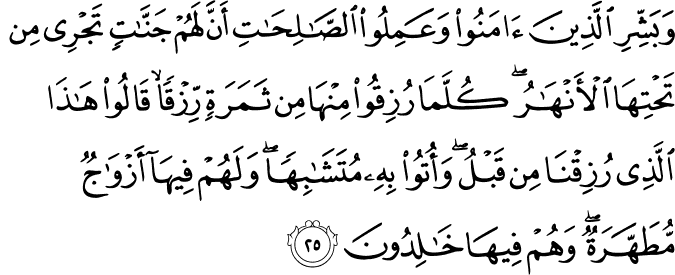 وَبَشِّرِ ٱلَّذِينَ ءَامَنُوا۟ وَعَمِلُوا۟ ٱلصَّـٰلِحَـٰتِ أَنَّ لَهُمْ جَنَّـٰتٍ تَجْرِى مِن
تَحْتِهَا ٱلْأَنْهَـٰرُ ۖ كُلَّمَا رُزِقُوا۟ مِنْهَا مِن ثَمَرَةٍ رِّزْقًا ۙ قَالُوا۟ هَـٰذَا
ٱلَّذِى رُزِقْنَا مِن قَبْلُ ۖ وَأُتُوا۟ بِهِۦ مُتَشَـٰبِهًا ۖ وَلَهُمْ فِيهَآ أَزْوَٰجٌ
مُّطَهَّرَةٌ ۖ وَهُمْ فِيهَا خَـٰلِدُونَ ٢٥